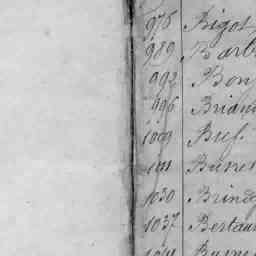 976 Bigot
989 Barb
992 Bon
996 Briand
1009 Buf.
1011 Bure
1030 Brind
1037 Bertau